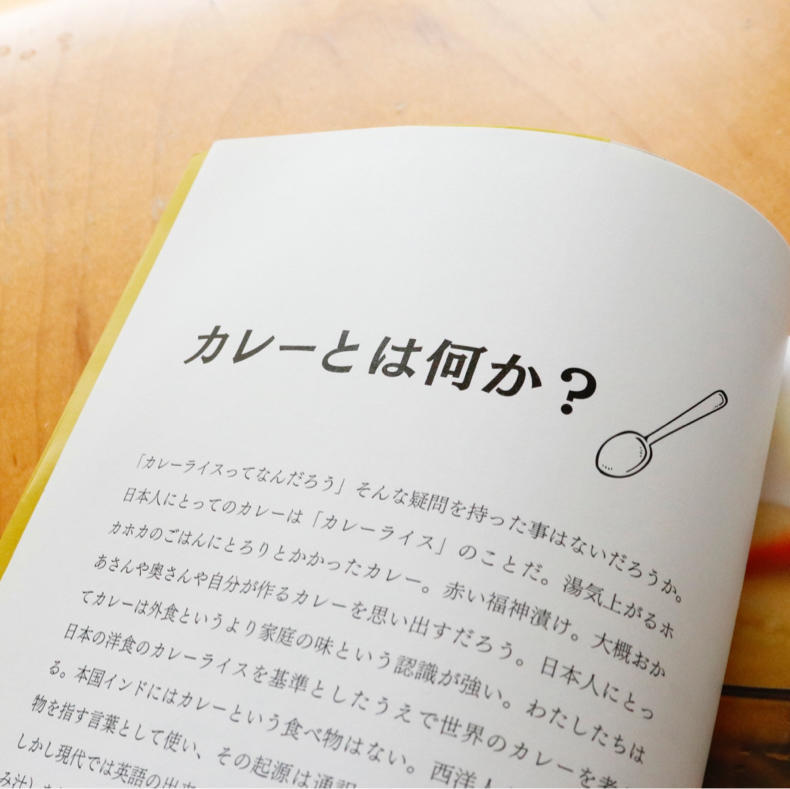 カレーとは何か？
「カレーライスってなんだろう」そんな疑問を持った事はないだろうか。
日本人にとってのカレーは「カレーライス」のことだ。湯気上がるホ
カホカのごはんにとろりとかかったカレー。赤い福神漬け。大概おか
あさんや奥さんや自分が作るカレーを思い出すだろう。日本人にとっ
てカレーは外食というより家庭の味という認識が強い。わたしたちは
日本の洋食のカレーライスを基準としたうえで世界のカレーを考
る。本国インドにはカレーという食べ物はない。西洋人
物を指す言葉として使い、その起源は通説
しかし現代では英語の出来
み汁）